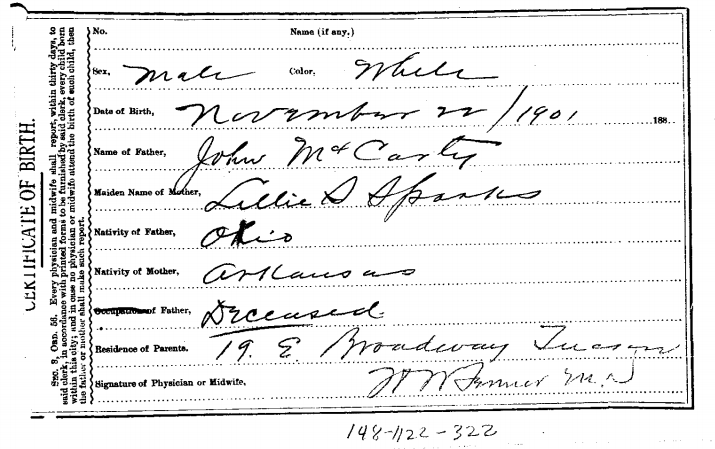 CERTIFICATE OF BIRTH.
SEC. 3, ORD. 56. Every physician and midwife shall report, within thirty days, to
said clerk, in accordance with printed forms to be furnished by said clerk, every child born
within this city; and in case no physician or midwife attend the birth of such child, then
the father or mother shall make such report.
No. Name (if any.)
Sex, Male Color, White
Date of Birth, November 22/1901 188
Name of Father, John McCarty
Maiden Name of Mother, Lillie S Sparks
Nativity of Father, Ohio
Nativity of Mother, Arkansas
Occupation of Father, Deceased
Residence of Parents. 19. E. Broadway Tucson
Signature of Physician or Midwife, H W Fenner M.D
148-1122-322